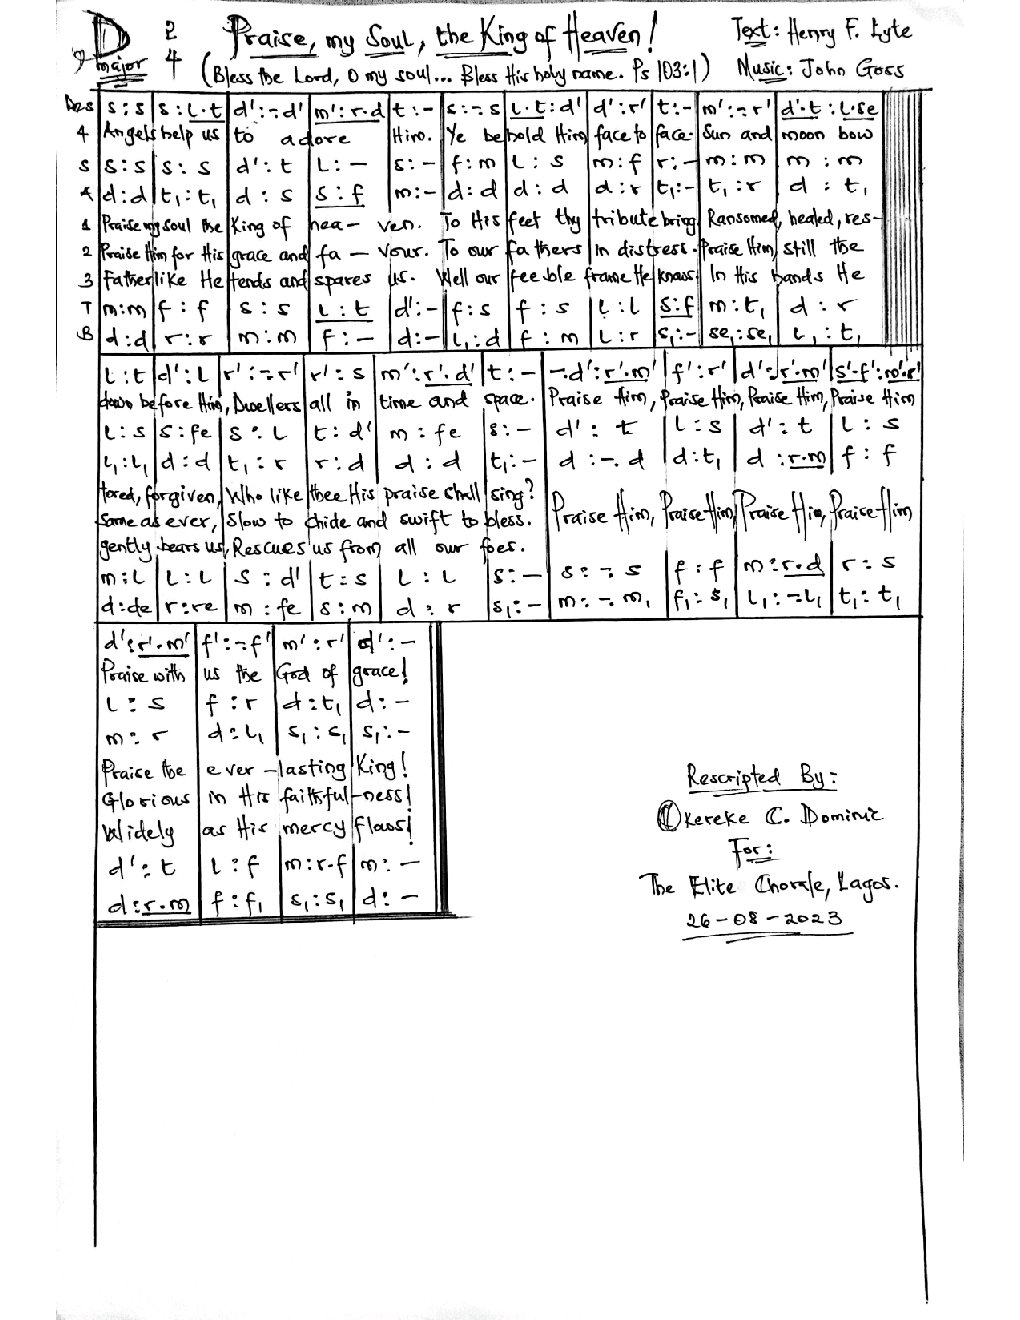 D major 2/4 Praise, my Soul, the King of Heaven! Text: Henry F. Lyte
(Bless the Lord, O my soul... Bless His holy name. Ps 103:1) Music: John Goss
Des s : s | s : l.t | d' : -.d' | m' : r.d | t : - | s : -.s | l.t : d' | d' : r' | t : - | m' : -.r' | d'.t : l.se
4 Angels help us to adore Him. Ye behold Him face to face. Sun and moon bow
S s : s | s : s | d' : t | l : - | s : - | f : m | l : s | m : f | r : - | m : m | m : m
A d : d | t₁ : t₁ | d : s | s : f | m : - | d : d | d : d | d : r | t₁ : - | t₁ : r | d : t₁
1 Praise my soul the King of hea - ven. To His feet thy tribute bring Ransomed, healed, res-
2 Praise Him for His grace and fa - vour. To our fathers in distress. Praise Him, still the
3 Father like He tends and spares us. Well our feeble frame He knows. In His hands He
T m : m | f : f | s : s | l : t | d' : - | f : s | f : s | l : l | s : f | m : t₁ | d : r
B d : d | r : r | m : m | f : - | d : - | l₁ : d | f : m | l : r | s₁ : - | se₁ : se₁ | l₁ : t₁
l : t | d' : l | r' : -.r' | r' : s | m' : r'.d' | t : - | -.d' : r'.m' | f' : r' | d' : r'.m' | s'.f' : m'.r'
down before Him, Dwellers all in time and space. Praise Him, Praise Him, Praise Him, Praise Him
l : s | s : fe | s : l | t : d' | m : fe | s : - | d' : t | l : s | d' : t | l : s
l₁ : l₁ | d : d | t₁ : r | r : d | d : d | t₁ : - | d : -.d | d : t₁ | d : r.m | f : f
tored, forgiven, Who like thee His praise shall sing? Praise Him, Praise Him, Praise Him, Praise Him
Same as ever, Slow to chide and swift to bless.
gently bears us, Rescues us from all our foes.
m : l | l : l | s : d' | t : s | l : l | s : - | s : -.s | f : f | m : r.d | r : s
d : de | r : re | m : fe | s : m | d : r | s₁ : - | m : -.m₁ | f₁ : s₁ | l₁ : -.l₁ | t₁ : t₁
d' : r'.m' | f' : -.f' | m' : r' | d' : -
Praise with us the God of grace!
l : s | f : r | d : t₁ | d : -
m : r | d : l₁ | s₁ : s₁ | s₁ : -
Praise the ever - lasting King!
Glorious in His faithful-ness!
Widely as His mercy flows!
d' : t | l : f | m : r.f | m : -
d : r.m | f : f₁ | s₁ : s₁ | d : -
Rescripted By:
Okereke C. Dominic
For:
The Elite Chorale, Lagos.
26-08-2023